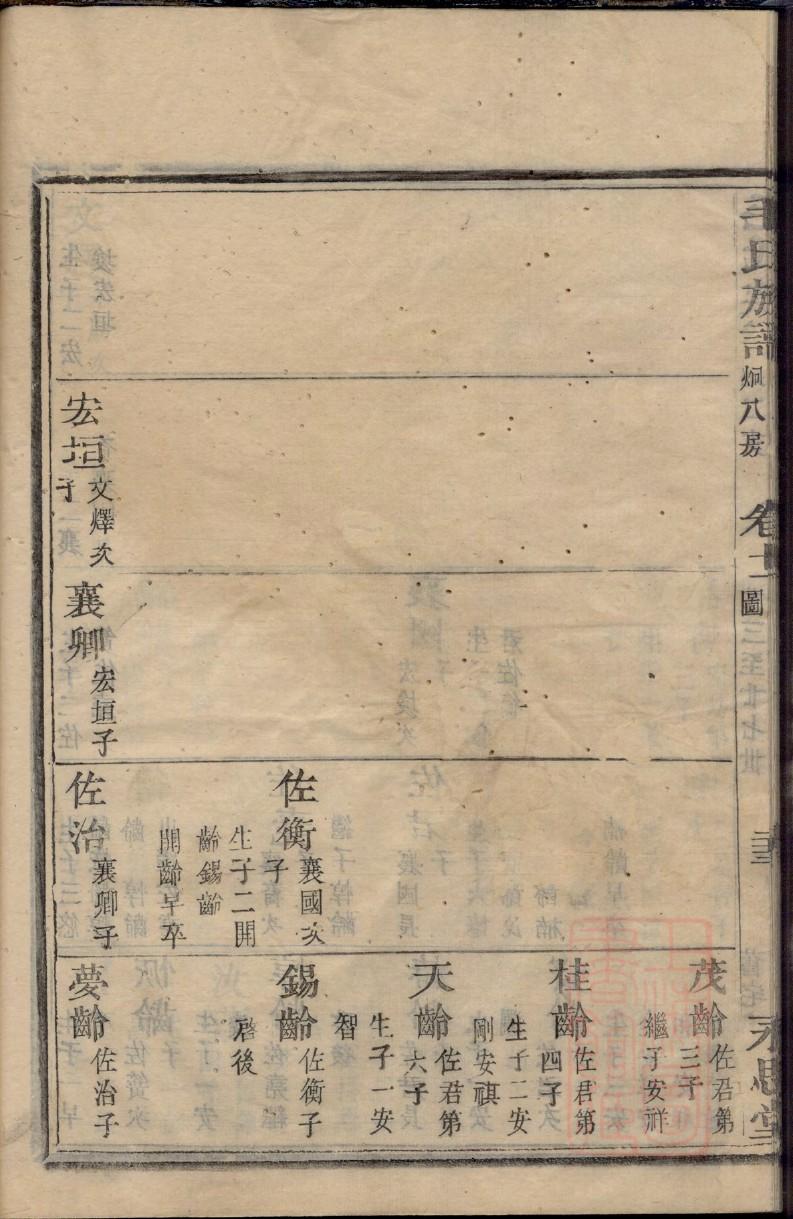 毛氏族譜
炯八房
卷十二
圖
永思堂
宏垣
文燡次
子
襄卿
宏垣子
佐衡
襄國次
子
生子二開
齡錫齡
開齡早卒
佐治
襄卿子
茂齡
佐君第
三子
繼子安祥
桂齡
佐君第
四子
生子二安
剛安祺
天齡
佐君第
六子
生子一安
智
錫齡
佐衡子
啓後
夢齡
佐治子